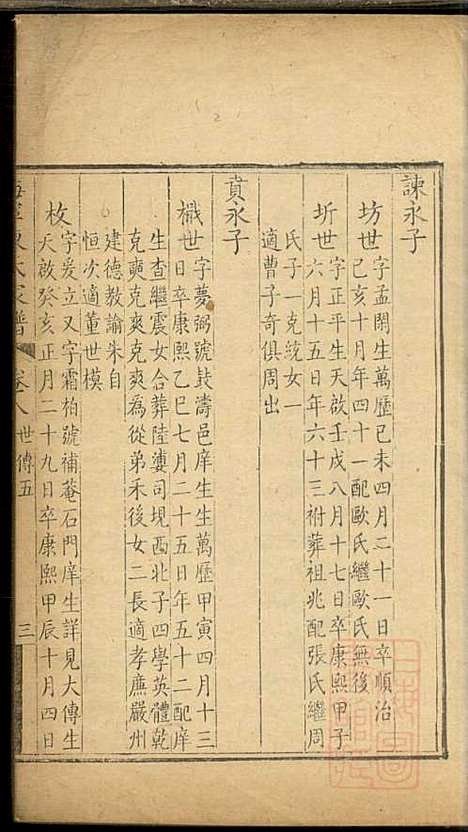 諫永子
坊世字孟閑生萬歷己未四月二十一日卒順治
己亥十月年四十一配歐氏繼歐氏無後
圻世字正平生天啟壬戌八月十七日卒康熙甲子
六月十五日年六十三祔葬祖兆配張氏繼周
氏子一克統女一
適曹子奇俱周出
賁永子
檝世字夢弼號鼓濤邑庠生生萬歷甲寅四月十三
日卒康熙乙巳七月二十五日年五十二配庠
生查繼震女合葬陸婆司堄西北子四學英體乾
克奭克爽克爽為從弟禾後女二長適孝廉嚴州
建德教諭朱自
恒次適董世模
枚字爰立又字霜柏號補菴石門庠生詳見大傳生
天啟癸亥正月二十九日卒康熙甲辰十月四日
氏家譜
卷八世傳五
三